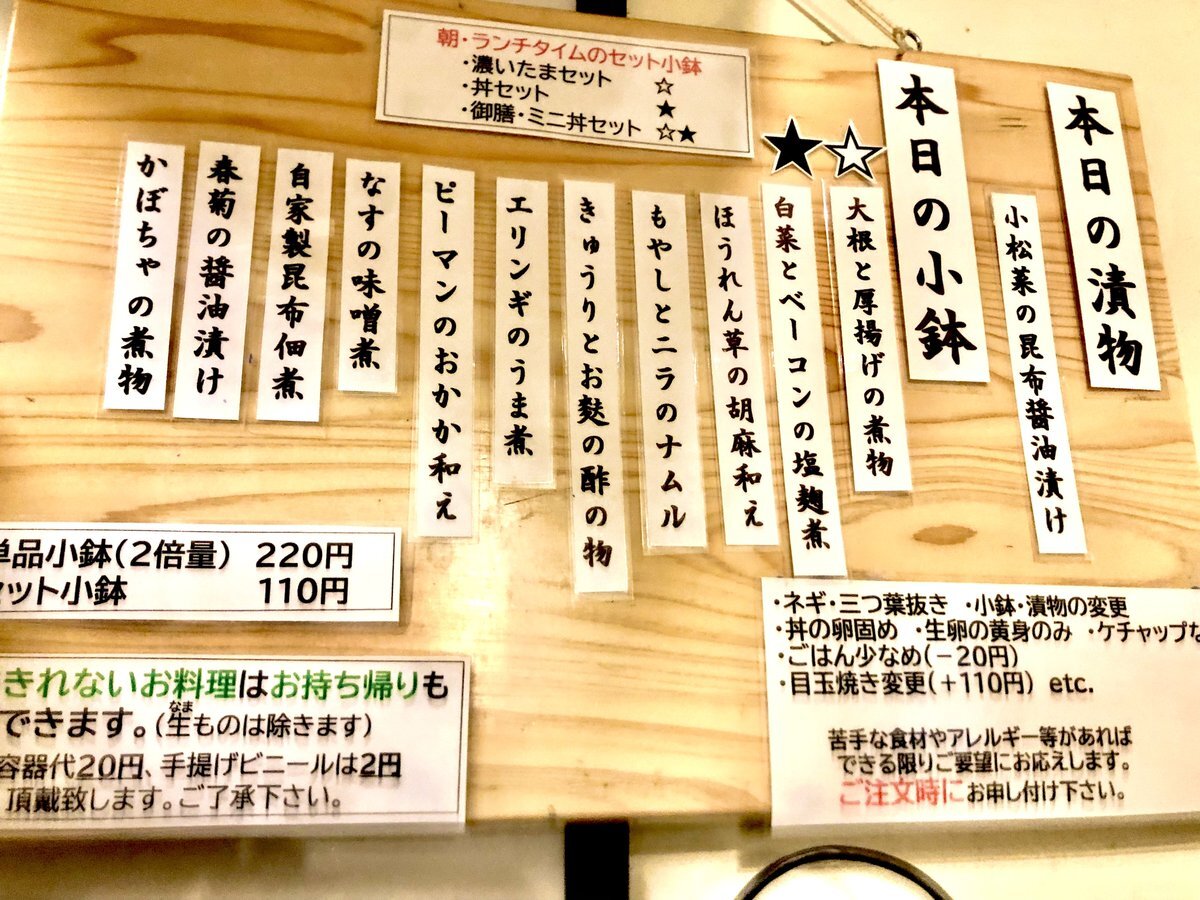 朝・ランチタイムのセット小鉢
・濃いたまセット ☆
・丼セット ★
・御膳・ミニ丼セット ☆★
本日の漬物
小松菜の昆布醤油漬け
本日の小鉢
☆
大根と厚揚げの煮物
★
白菜とベーコンの塩麹煮
ほうれん草の胡麻和え
もやしとニラのナムル
きゅうりとお麩の酢の物
エリンギのうま煮
ピーマンのおかか和え
なすの味噌煮
自家製昆布佃煮
春菊の醤油漬け
かぼちゃの煮物
単品小鉢(2倍量) 220円
セット小鉢 110円
きれないお料理はお持ち帰りも
できます。(生ものは除きます)
なま
容器代20円、手提げビニールは2円
頂戴致します。ご了承下さい。
・ネギ・三つ葉抜き ・小鉢・漬物の変更
・丼の卵固め ・生卵の黄身のみ ・ケチャップな
・ごはん少なめ(-20円)
・目玉焼き変更(+110円) etc.
苦手な食材やアレルギー等があれば
できる限りご要望にお応えします。
ご注文時にお申し付け下さい。